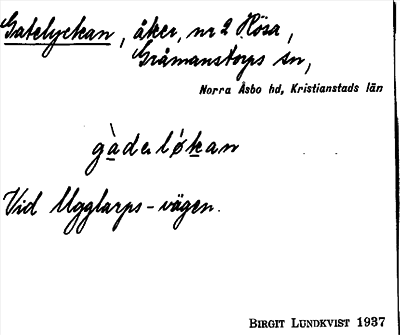 Gatelyckan, åker, nr 2 Hösa,
Gråmanstorps sn,
Norra Åsbo hd, Kristianstads län
gàdeløkan
Vid Ugglarps-vägen.
BIRGIT LUNDKVIST 1937